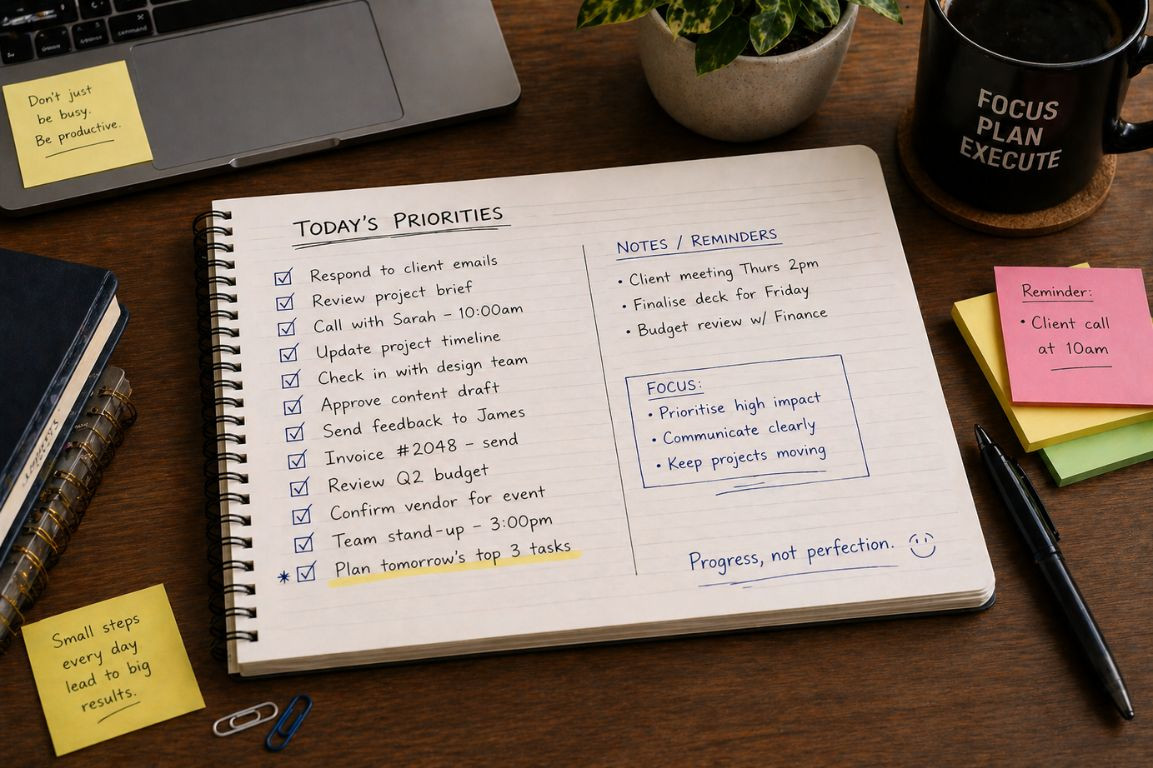 Don't just
be busy.
Be productive.
FOCUS
PLAN
EXECUTE
TODAY'S PRIORITIES
Respond to client emails
Review project brief
Call with Sarah – 10:00am
Update project timeline
Check in with design team
Approve content draft
Send feedback to James
Invoice #2048 – send
Review Q2 budget
Confirm vendor for event
Team stand-up – 3:00pm
* Plan tomorrow's top 3 tasks
NOTES / REMINDERS
• Client meeting Thurs 2pm
• Finalise deck for Friday
• Budget review w/ Finance
FOCUS:
• Prioritise high impact
• Communicate clearly
• Keep projects moving
Progress, not perfection.
Reminder:
• Client call
at 10am
Small steps
every day
lead to big
results.